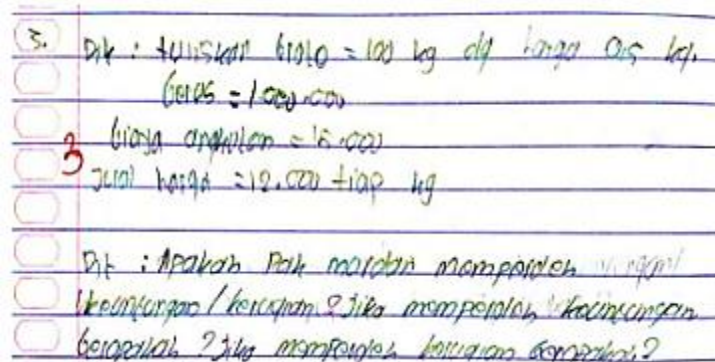 3. Dik : tuliskan bruto = 100 kg dg harga 0,5 kg.
beras = 1.000.000
3 biaya angkutan = 15.000
Jual harga = 12.000 tiap kg
Dit : Apakah Pak mardan memperoleh
keuntungan / kerugian ? Jika memperoleh keuntungan
berapakah ? Jika memperoleh kerugian berapakah ?